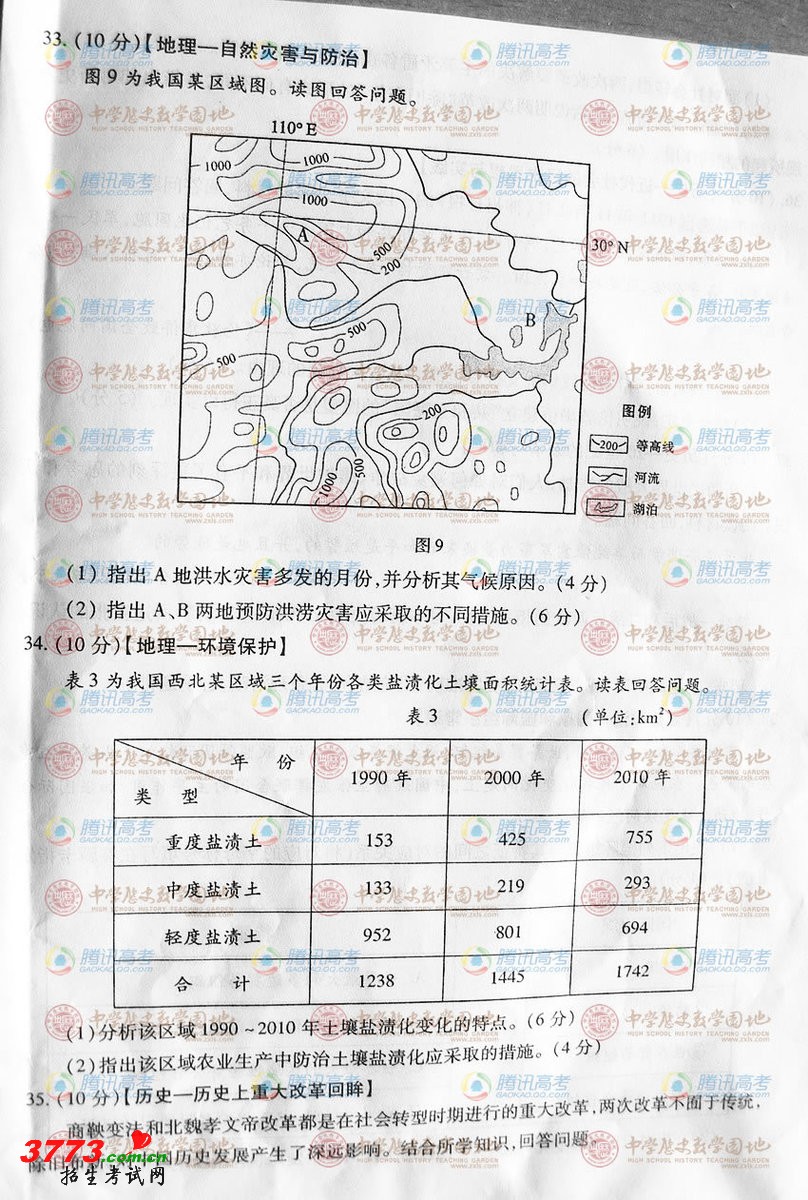 33. (10 分)【地理—自然灾害与防治】
图 9 为我国某区域图。读图回答问题。
110° E
1000
1000
1000
A
500
200
30° N
B
500
500
200
1000
500
图例
200 等高线
河流
湖泊
图 9
(1) 指出 A 地洪水灾害多发的月份,并分析其气候原因。(4 分)
(2) 指出 A、B 两地预防洪涝灾害应采取的不同措施。(6 分)
34. (10 分)【地理—环境保护】
表 3 为我国西北某区域三个年份各类盐渍化土壤面积统计表。读表回答问题。
表 3 (单位:km²)
年 份 类 型 1990 年 2000 年 2010 年
重度盐渍土 153 425 755
中度盐渍土 133 219 293
轻度盐渍土 952 801 694
合 计 1238 1445 1742
(1)分析该区域 1990 ~2010 年土壤盐渍化变化的特点。(6 分)
(2)指出该区域农业生产中防治土壤盐渍化应采取的措施。(4 分)
35. (10 分)【历史—历史上重大改革回眸】
商鞅变法和北魏孝文帝改革都是在社会转型时期进行的重大改革,两次改革不囿于传统,
除旧布新 历史发展产生了深远影响。结合所学知识,回答问题。
3773.com.cn
招生考试网
腾讯高考
GAOKAO.QQ.COM
中学历史教学园地
HIGH SCHOOL HISTORY TEACHING GARDEN
www.zxls.com